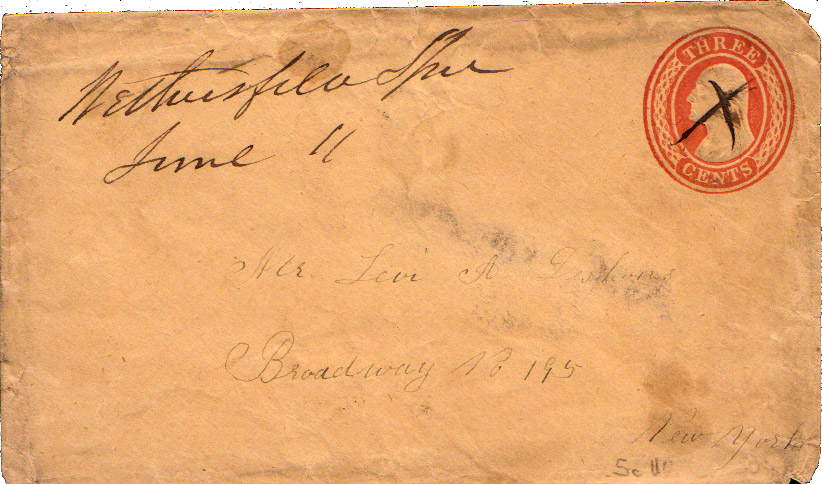 Wethersfield Spr
June 11
THREE
CENTS
Mr Levi A
Broadway No 195
New York